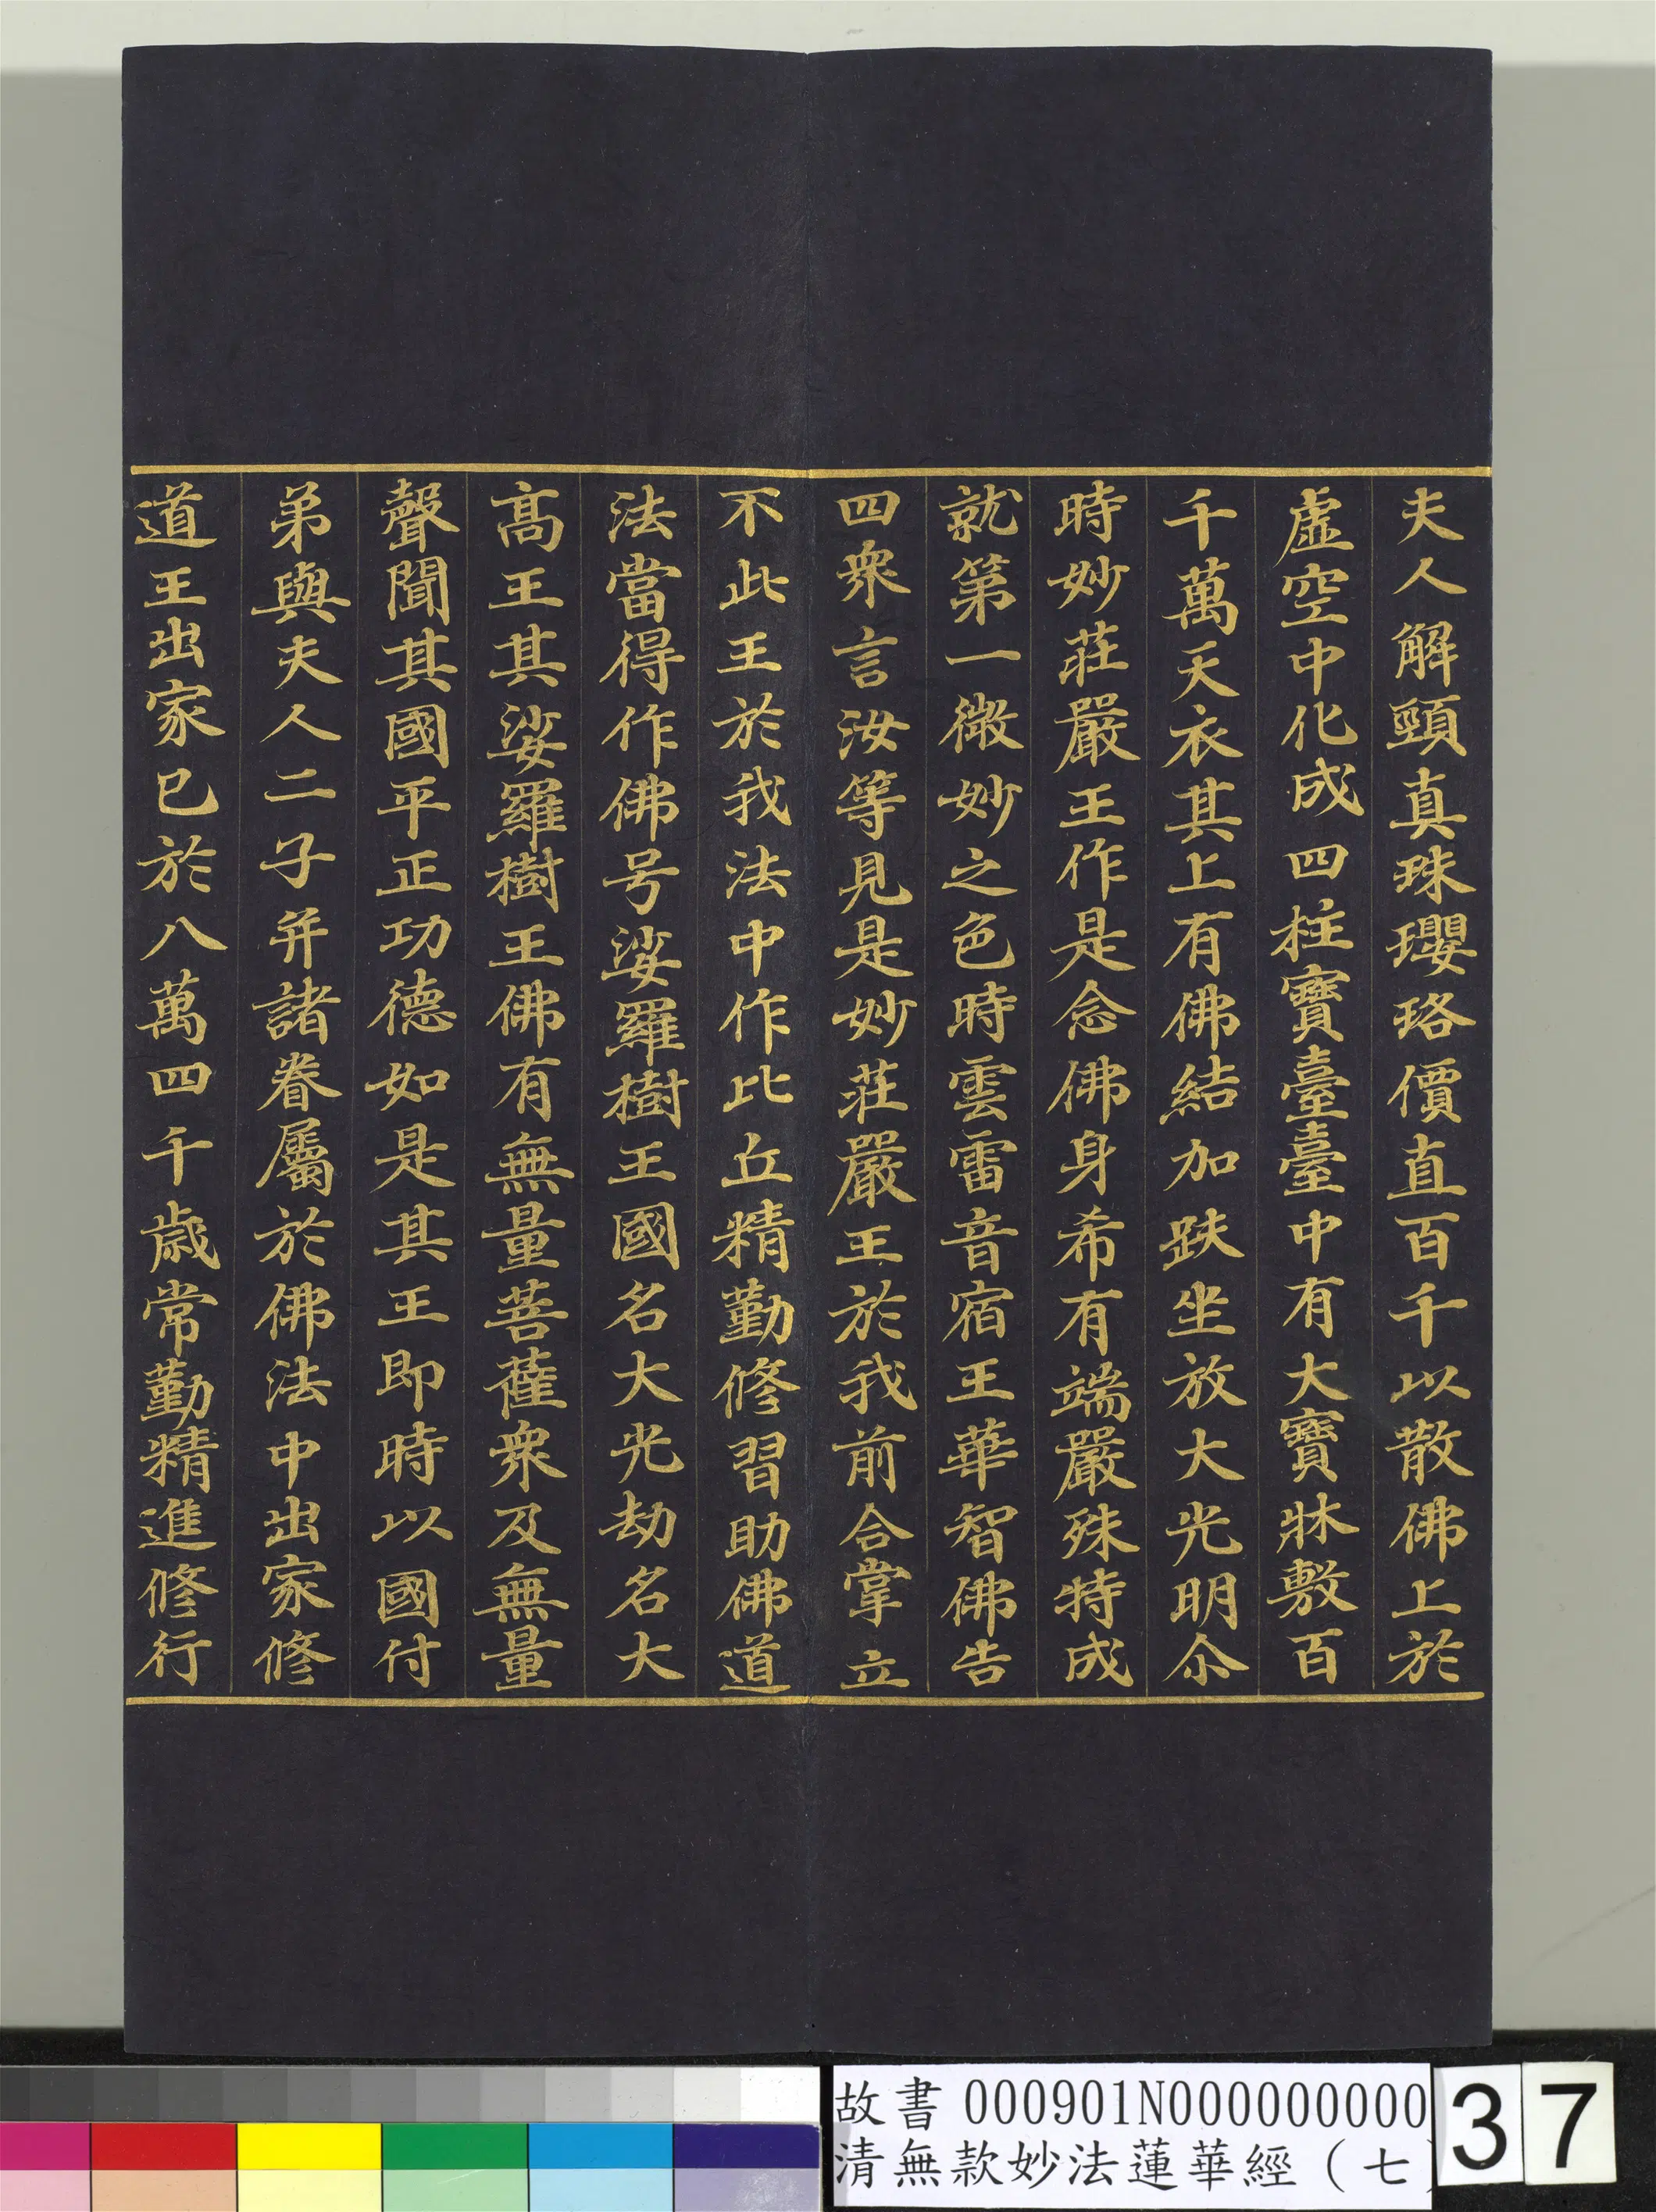 夫人解頸真珠瓔珞價直百千以散佛上於
虛空中化成四柱寶臺臺中有大寶牀敷百
千萬天衣其上有佛結加趺坐放大光明尒
時妙莊嚴王作是念佛身希有端嚴殊特成
就第一微妙之色時雲雷音宿王華智佛告
四衆言汝等見是妙莊嚴王於我前合掌立
不此王於我法中作比丘精勤修習助佛道
法當得作佛号娑羅樹王國名大光劫名大
髙王其娑羅樹王佛有無量菩薩衆及無量
聲聞其國平正功德如是其王即時以國付
弟與夫人二子并諸眷屬於佛法中出家修
道王出家已於八萬四千歲常勤精進修行
故書 000901N000000000
清無款妙法蓮華經（七
37